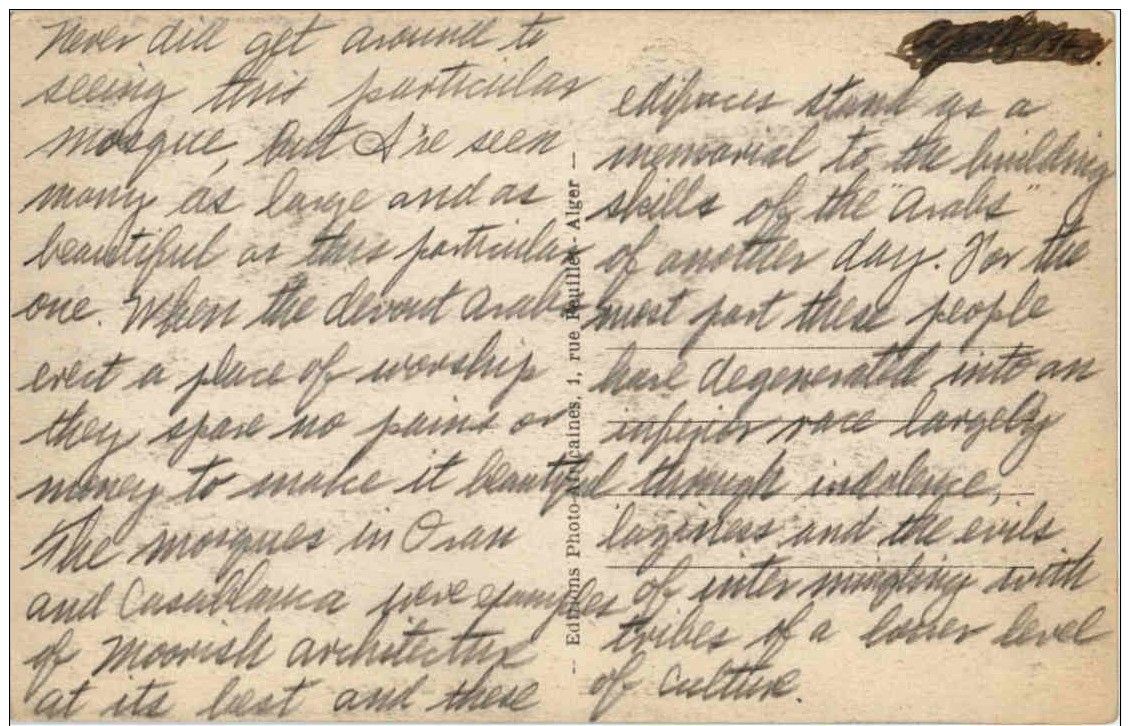 Never did get around to
seeing this particular
mosque, but I've seen
many as large and as
beautiful as this particular
one. When the devout Arabs
erect a place of worship
they spare no pains or
money to make it beautiful
The mosques in Oran
and Casablanca were examples
of Moorish architecture
at its best and these
edifices stand as a
memorial to the building
skills of the "Arabs"
of another day. For the
most part these people
have degenerated into an
inferior race largely
through indolence,
laziness and the evils
of inter mingling with
tribes of a lower level
of culture.
-- Editions Photo-Africaines, 1, rue Feuillet - Alger --